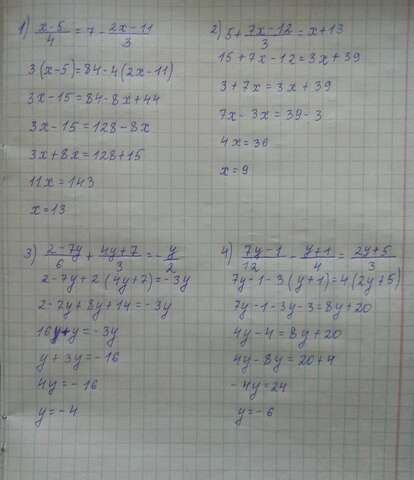 1) (x-5)/4 = 7 - (2x-11)/3
3(x-5)=84-4(2x-11)
3x-15=84-8x+44
3x-15=128-8x
3x+8x=128+15
11x=143
x=13
2) 5+(7x-12)/3=x+13
15+7x-12=3x+39
3+7x=3x+39
7x-3x=39-3
4x=36
x=9
3) (2-7y)/6 + (4y+7)/3 = -y/2
2-7y+2(4y+7)=-3y
2-7y+8y+14=-3y
16+y=-3y
y+3y=-16
4y=-16
y=-4
4) (7y-1)/12 - (y+1)/4 = (2y+5)/3
7y-1-3(y+1)=4(2y+5)
7y-1-3y-3=8y+20
4y-4=8y+20
4y-8y=20+4
-4y=24
y=-6